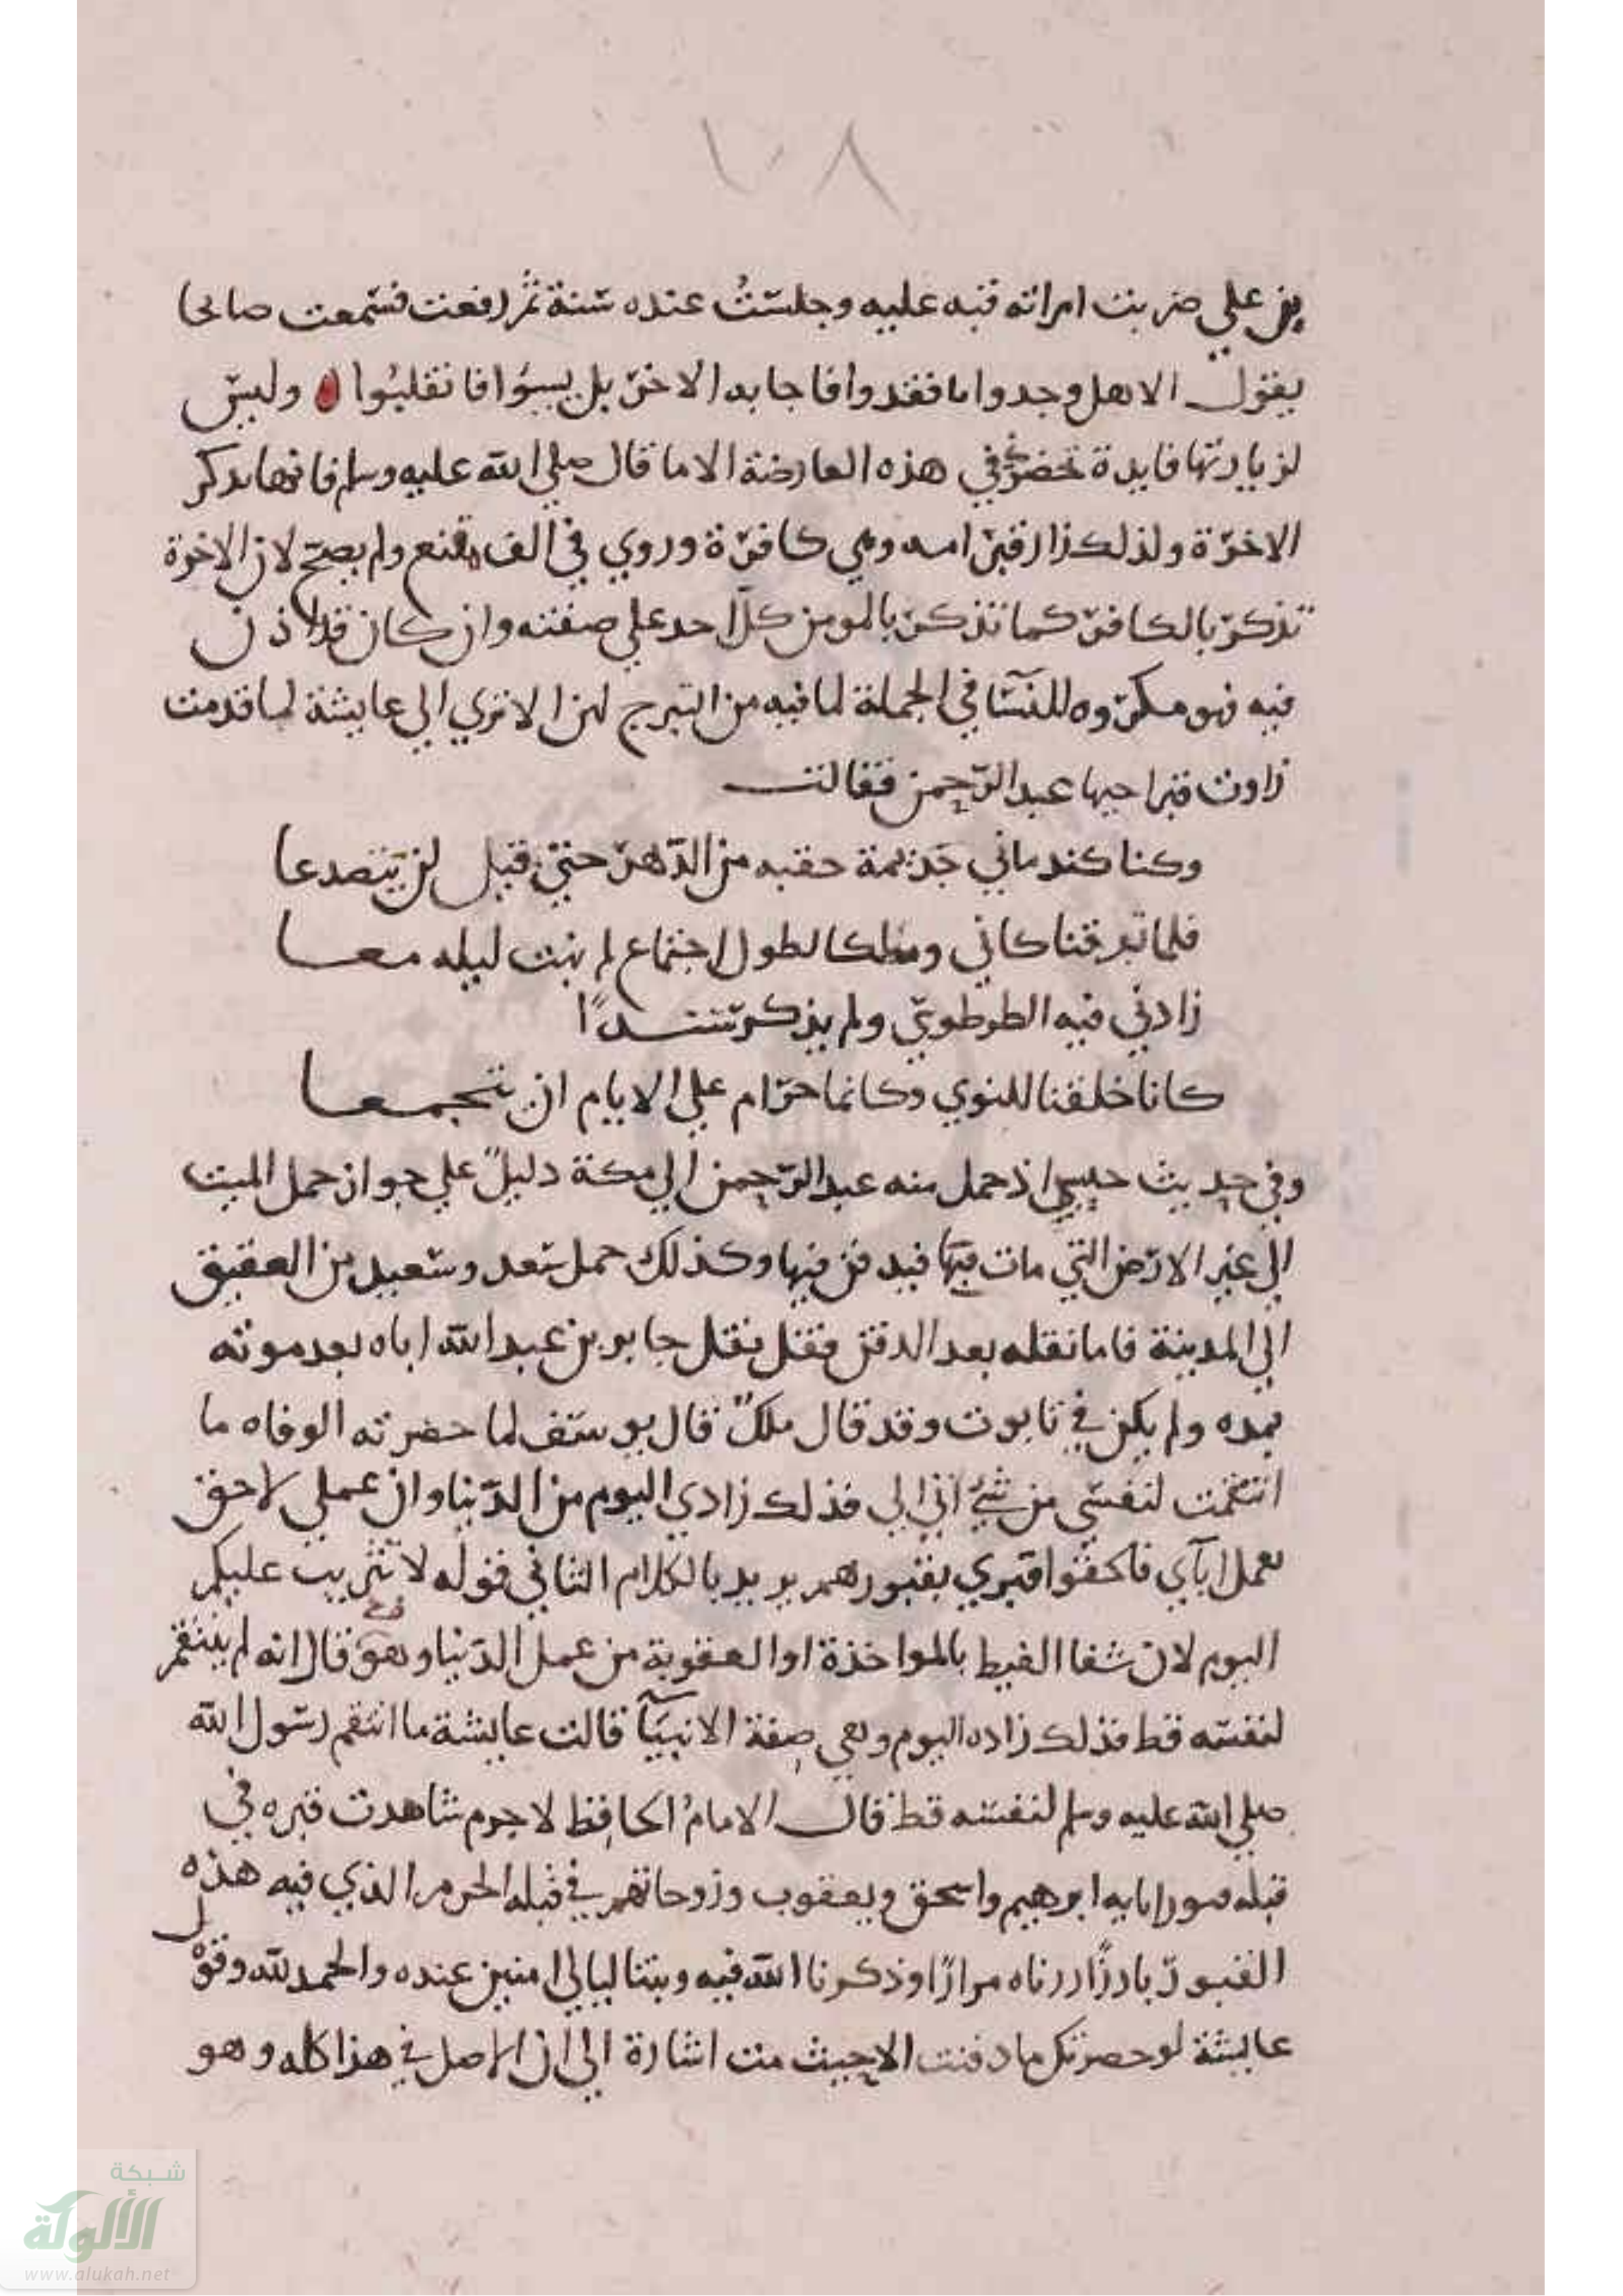 ١٠٨
بن علي ضربت امراته قبه عليه وجلست عنده سنة ثم رفعت فسمعت صائحا
يقول الا هل وجدوا ما فقدوا فاجابه الاخر بل يسوا فانقلبوا وليس
لزيارتها فايدة تحضرني في هذه العارضة الا ما قال صلي الله عليه وسلم فانها تذكر
الاخرة ولذلك زار قبر امه وهي كافرة وروي في الف مقنع ولم يصح لان الاخرة
تذكر بالكافر كما تذكر بالمومن كل احد علي صفته وان كان قد اذن
فيه فهو مكروه للنسا في الجملة لما فيه من التبرج لهن الا تري الي عايشة لما قدمت
زارت قبر اخيها عبد الرحمن فقالت
وكنا كندماني جذيمة حقبه من الدهر حتي قيل لن يتصدعا
فلما تفرقنا كاني ومالكا لطول اجتماع لم نبت ليله معا
زادني فيه الطرطوي ولم يذكر سندا
كانا خلقنا للنوي وكانما حرام علي الايام ان نتجمعا
وفي حديث حبيبي اذ حمل منه عبد الرحمن الي مكة دليل علي جواز حمل الميت
الي غير الارض التي مات فيها فيدفن فيها وكذلك حمل سعد وسعيد من العقيق
الي المدينة فاما نقله بعد الدفن فقل نقل جابر بن عبد الله اباه بعد موته
بمده ولم يكن في تابوت وقد قال ملك قال يوسف لما حضرته الوفاه ما
انتقمت لنفسي من شيء اتي الي فذلك زادي اليوم من الدنيا وان عملي لاحق
بعمل ابآي فالحقوا قبري بقبورهم يريد بالكلام الثاني قوله لا تثريب عليكم
اليوم لان شفا الغيط بالمواخذة او العقوبة من عمل الدنيا وهو قال انه لم ينتقم
لنفسه قط فذلك زاده اليوم وهي صفة الانبيآ قالت عايشة ما انتقم رسول الله
صلي الله عليه وسلم لنفسه قط قال الامام الحافظ لا جرم شاهدت قبره في
قبله قبور ابايه ابرهيم واسحق ويعقوب وزوجاتهم في قبله الحرم الذي فيه هذه
القبور بارزا زرناه مرارا وذكرنا الله فيه وبتنا ليالي امنين عنده والحمد لله وقول
عايشة لو حضرتك ما دفنت الا حيث مت اشارة الي ان الاصل في هذا كله وهو
شبكة
الألوكة
www.alukah.net